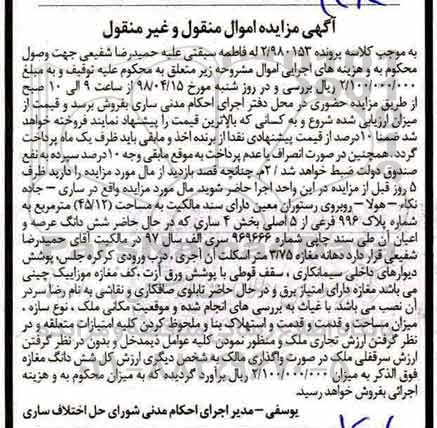 آگهی مزایده اموال منقول و غیر منقول
به موجب کلاسه پرونده ۲/۹۸۰۱۵۳ له فاطمه سیفتی علیه حمیدرضا شفیعی جهت وصول
محکوم به و هزینه های اجرایی اموال مشروحه زیر متعلق به محکوم علیه توقیف و به مبلغ
۲/۱۰۰/۰۰۰/۰۰۰ ریال بررسی و در روز شنبه مورخ ۹۸۰۴/۱۵ از ساعت ۹ الی ۱۰ صبح
از طریق مزایده حضوری در محل دفتر اجرای احکام مدنی ساری بفروش برسد و قیمت از
میزان ارزیابی شده شروع و به کسانی که بالاترین قیمت را پیشنهاد نمایند فروخته خواهد
شد ضمنا ۱۰درصد از قیمت پیشنهادی نقدا از برنده اخذ و مابقی باید ظرف یک ماه پرداخت
گردد . همچنین در صورت انصراف یا عدم پرداخت به موقع مابقی وجه ۱۰درصد سپرده به نفع
صندوق دولت ضبط خواهد شد / ۲م. چنانچه قصد بازدید از مال مورد مزایده را دارید ظرف
۵ روز قبل از مزایده در این واحد اجرا حضور شوید. مال مورد مزایده واقع در ساری – جاده
نکاء – هولا – روبروی رستوران معین دارای سند مالکیت به مساحت (۴۵/۱۲) مترمربع به
شماره پلاک ۹۹۶ فرعی از ۵ اصلی بخش ۴ ساری که در حال حاضر شش دانگ عرصه و
اعیان آن طی سند چاپی شماره ۹۶۹۶۶۶ سری الف سال ۹۷ در مالکیت آقای حمیدرضا
شفیعی قرار دارد دهانه مغازه ۳/۷۵ متر اسکلت آن آجری ، درب ورودی کرکره جلس، پوشش
دیوارهای داخلی سیمانکاری ، سقف قوطی با پوشش ورق آردت ،کف مغازه موزاییک چینی
می باشد مغازه دارای امتیاز برق و در حال حاضر تابلوی صافکاری و نقاشی به نام رضا سردر
آن نصب می باشد. با عنایت به بررسی های انجام شده و موقعیت مکانی ملک ، نوع سازه ،
میزان مساحت و قدمت و قدمت و استهلاک بنا و ملحوظ کردن کلیه امتیازات متعلقه و در
نظر گرفتن ارزش تجاری ملک و منظور نمودن کلیه عوامل ذیمدخل و بدون در نظر گرفتن
ارزش سرقفلی ملک در صورت واگذاری مالک به شخص دیگری ارزش کل شش دانگ مغازه
فوق الذکر به میزان ۲/۱۰۰/۰۰۰/۰۰۰ ریال برآورد گردیده که به میزان محکوم به و هزینه
اجرائی بفروش خواهد رسید.
یوسفی – مدیر اجرای احکام مدنی شورای حل اختلاف ساری